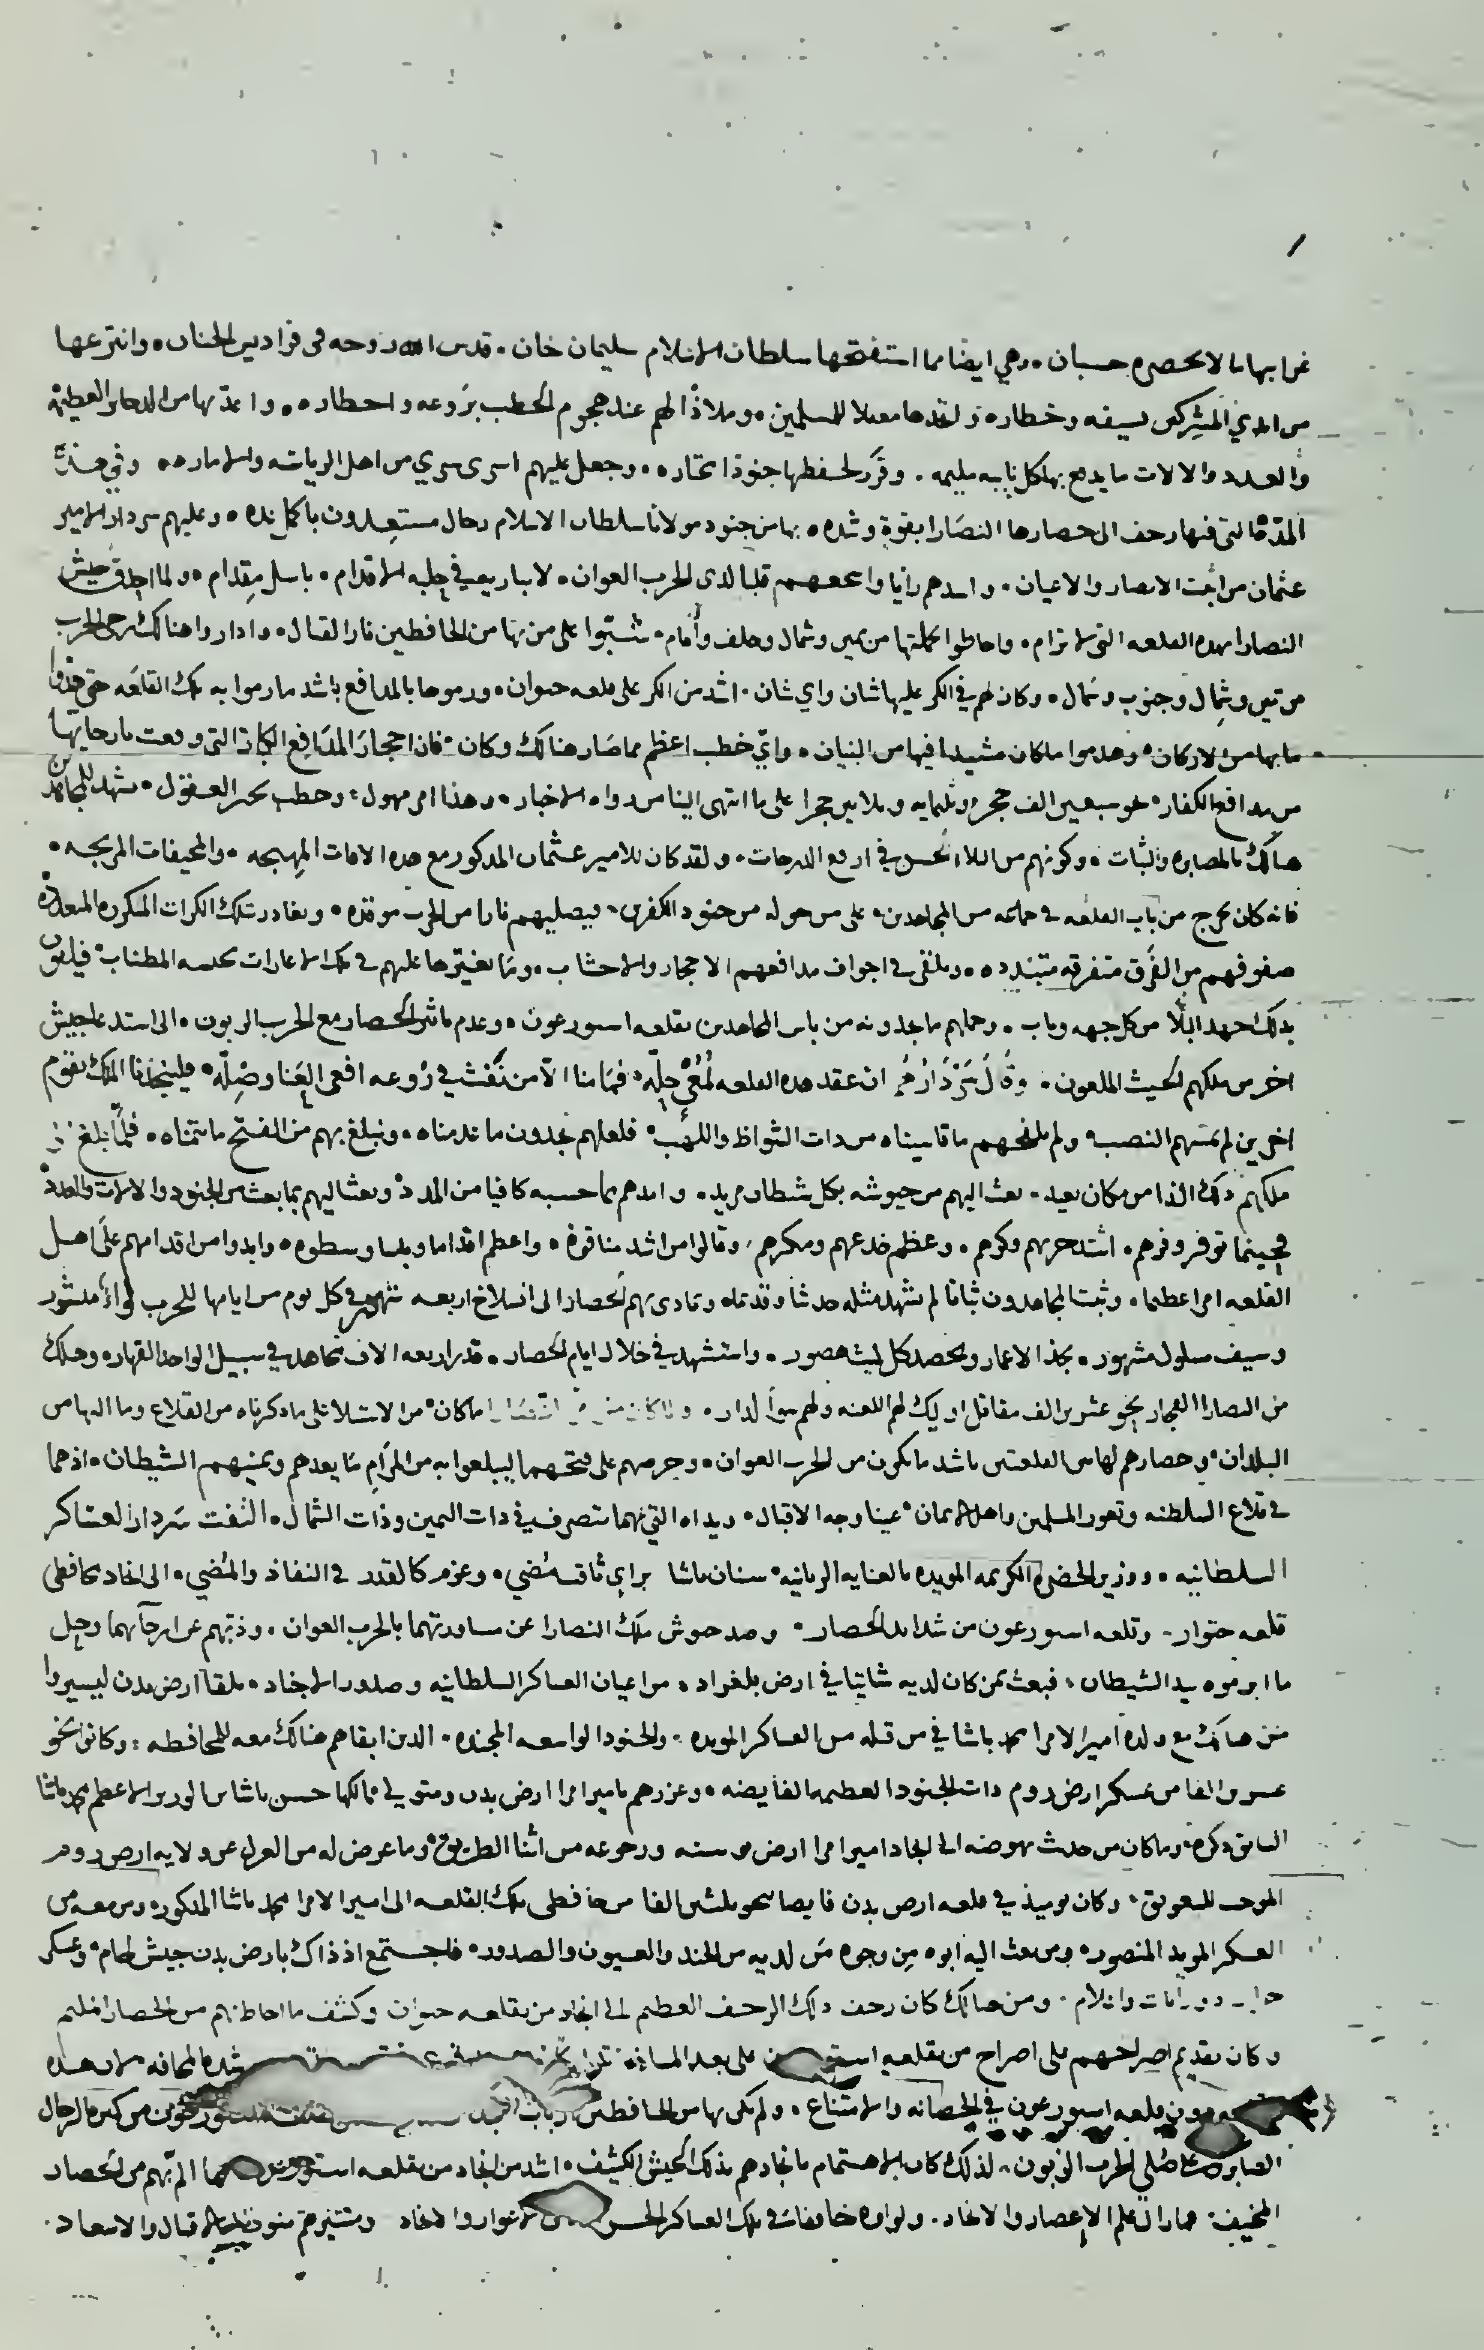 غرابيها ما لا يحصره حسبان ٠ وهي ايضا مما استفتحها سلطان الاسلام سليمان خان ٠ قدس الله روحه في فراديس الجنان ٠ وانتزعها
من ايدي المشركين بسيفه وخطاره ٠ معقلا للمسلمين ٠ وملاذا لهم عند هجوم الخطب بروعه واخطاره ٠ واعد بها من
والعدد والالات ما يدفع بها كل نايبه مليمه ٠ وقرر لحفظها جنودا مختاره ٠ وجعل عليهم اسرى سري من اهل الرياسه والاماره ٠ وفي هذه
المده التي فيها زحف الى حصارها النصارا بقوة وشده ٠ بها من جنود مولانا سلطان الاسلام رجال مستعدون باكمل عده ٠ وعليهم سردار الامير
عثمان من اثبت الانصار والاعيان ٠ واسدهم رايا واشجعهم قلبا لدى الحرب العوان ٠ لا يباريه في حلبه الاقدام ٠ باسل مقدام ٠ ولما احدق جيش
النصارا بهذه القلعه التي لا ترام ٠ واحاطوا بجملتها من يمين وشمال وخلف وأمام ٠ شبّوا على من بها من الحافظين نار القتال ٠ واداروا هنالك رحى الحرب
من يمين وشمال وجنوب وشمال ٠ وكان لهم في الكر عليها شان واي شان ٠ اشد من الكر على قلعه حتوان ٠ ورموها بالمدافع باشد ما رموا به تلك القلعه حتى هدوا
ما بها من الاركان ٠ وهدموا ما كان مشيدا فيها من البنيان ٠ وايّ خطب اعظم مما صار هنالك وكان ٠ فان احجار المدافع الكبار التي وقعت بارجايها
من مدافع الكفار ٠ نحو سبعين الف حجر وثلثمايه وثلاثين حجرا على ما انتهى الينا من رواه الاخبار ٠ وهذا امر مهول ٠ وخطب يحير العقول ٠ شهد للمجاهدين
هنالك بالمصابره والثبات ٠ وكونهم من البلاء الحسن في ارفع الدرجات ٠ ولقد كان للامير عثمان المذكور مع هذه الافات المهيجه ٠ والمخيفات المزعجه ٠
فانه كان يخرج من باب القلعه في جماعه من المجاهدين ٠ على من حوله من جنود الكفرين ٠ فيصليهم نارا من الحرب موقده ٠ ويغادر بتلك الكرات المتكرره المتعدده
صفوفهم من الفَرَق متفرقه متبدده ٠ ويلقي في اجواف مدافعهم الاحجار والاخشاب ٠ فيلقون
بذلك اجهد البلا من كل جهه وباب ٠ وحملهم ما يجدونه من باس المجاهدين بقلعه استورغون ٠ وعدم تاثير الحصار مع الحرب الزبون ٠ الى استدعا جيش
اخر من ملكهم الخبيث الملعون ٠ ان عقد هذه القلعه لمعيي حله ٠ فما منا الا من نفث في روعه افعى العنا وصِلّه ٠ فلينجدنا الملك بقوم
اخرين لم يمسهم النصب ٠ ولم يلفحهم ما قاسيناه من ذات الشواظ واللهب ٠ فلعلهم يجدون ما عدمناه ٠ ونبلغ بهم من الفتح ما نتمناه ٠ فلما بلغ
ملكهم ذلك الندا من مكان بعيد ٠ بعث اليهم من جيوشه بكل شيطان مريد ٠ وامدهم بما حسبه كافيا من المدد ٠ وبعث اليهم بما بعث من الجنود والالات والعدد
فحينما توفر وفرهم ٠ اشتد حربهم وكرهم ٠ وعظم خدعهم ومكرهم ٠ وقالوا من اشد منا قوة ٠ واعظم اقداما وباسا وسطوه ٠ وابدوا من اقدامهم على اهل
القلعه امرا عظيما ٠ وثبت المجاهدون ثباتا لم يشهد مثله حديثا وقديما ٠ وتمادى بهم الحصار الى انسلاخ اربعه شهور في كل يوم من ايامها للحرب لواء منشور
وسيف مسلول مشهور ٠ يجذ الاعمار ويحصد كل ليث هصور ٠ واستشهد في خلال ايام الحصار ٠ قدر اربعه الاف مجاهد في سبيل الواحد القهار ٠ وهلك
من النصارا الفجار نحو عشرين الف مقاتل اوليك لهم اللعنه ولهم سوء الدار ٠ ما كان ٠ من الاستيلا على ما ذكرناه من القلاع وما اليها من
البلدان ٠ وحصارهم لهاتين القلعتين باشد ما يكون من الحرب العوان ٠ وحرصهم على فتحهما ليبلغوا به من المرام ما يعدهم ويمنيهم الشيطان ٠ اذ هما
في قلاع السلطنه وثغور المسلمين واهل الايمان ٠ عينا وجه الاقبال ٠ ويداه التي بهما يتصرف في ذات اليمين وذات الشمال ٠ التفت سردار العساكر
السلطانيه ٠ ووزير الحضره الكريمه المويده بالعنايه الربانيه ٠ سنان باشا براي ثاقب مُضي ٠ وعزم كالقدر في النفاذ والمُضي ٠ الى انجاد محافظي
قلعه حتوان ٠ وقلعه استورغون من شدايد الحصار ٠ وصد جيوش ملك النصارا عن مساورتهما بالحرب العوان ٠ وذبهم عن ارجايهما وحل
ما ابرموه بيد الشيطان ٠ فبعث بمن كان لديه شاتيا في ارض بلغراد ٠ من اعيان العساكر السلطانيه وصدور الاجناد ٠ تلقا ارض بدن ليسيروا
من هنالك مع ولده امير الامرا محمد باشا في من قبله من العساكر المويده ٠ والجنود الواسعه المجنده ٠ الذين ابقاهم هنالك معه للمحافظه ٠ وكانوا نحو
عشرين الفا من عسكر ارض روم ذات الجنود العظيمه الفايضه ٠ وعززهم بامير امرا ارض بدن ومتولي ممالكها حسن باشا بن الوزير الاعظم محمد باشا
السابق ذكره ٠ وما كان من حديث نهوضه الى انجاد امير امرا ارض بوسنه ورجوعه من اثنا الطريق ٠ وما عرض له من العزل عن ولايه ارض روم
الموجب للتعويق ٠ وكان يوميذ في قلعه ارض بدن فايضا نحو ثلثين الفا من حافظي تلك القلعه الى امير الامرا محمد باشا المذكور ٠ ومن معه من
العسكر المويد المنصور ٠ ومن بعث اليه ابوه من وجوه من لديه من الجند والعيون والصدور ٠ فاجتمع اذ ذاك بارض بدن جيش لهام ٠ وعسكر
ورايات واعلام ٠ ومن هنالك كان زحف ذلك الزحف العظيم الى انجاد من بقلعه حتوان وكشف ما احاط بهم من الحصار الاليم
وكان تقديم اصراخهم على اصراخ من بقلعه على بعد المسافه شده المخافه ٠ لان هذه
دون قلعه استورغون في الحصانه والامتناع ٠ ولم يكن بها من الحافظين من كثره الرجال
الصابرين على صُلي الحرب الزبون ٠ لذلك كان الاهتمام بانجادهم بذلك الجيش الكثيف ٠ اشد من انجاد من بقلعه الم بهم من الحصار
المخيف ٠ فما زال علم الاعصار والانجاد ٠ ولواوه خافقان في تلك العساكر والانجاد الاقبال والاسعاد ٠